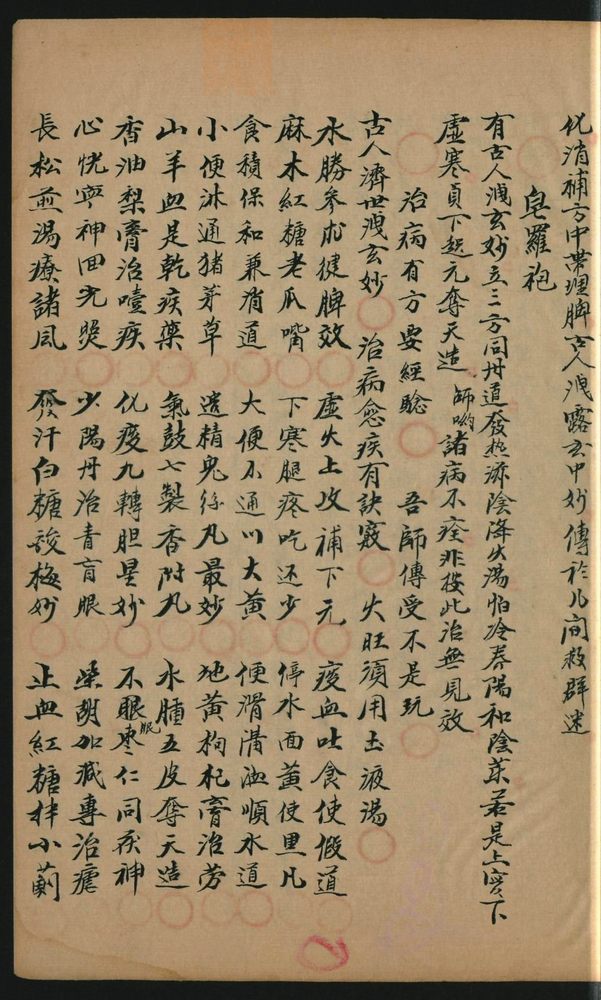 化消補方中帶理脾古人洩露玄中妙傳於凡間救群迷
皂羅袍
有古人洩玄妙立三方同丹道發熱滋陰降火湯怕冷春陽和陰菜若是上實下
虛寒貞下起元奪天造師喲諸病不痊非按此治無見效
治病有方要經驗 吾師傳受不是玩
古人濟世洩玄妙 治病愈疾有訣竅 火旺須用玉液湯
水勝參朮健脾效 虛火上攻補下元 痰血吐食使假道
麻木紅糖老瓜嘴 下寒腿疼吃还少 停水面黃使黑凡
食積保和兼消道 大便不通川大黃 便滑濇洫順水道
小便淋通猪芽草 遺精兔絲丸最妙 地黃枸杞膏治劳
山羊血是乾疾藥 氣鼓七製香附丸 水腫五皮奪天造
香油梨膏治噎疾 化痰九轉胆星妙 不眠棗仁同茯神
心恍寧神回光照 少陽丹治青盲眼 柴胡加減專治瘧
長松煎湯療諸風 發汗白糖酸梅妙 止血紅糖拌小薊